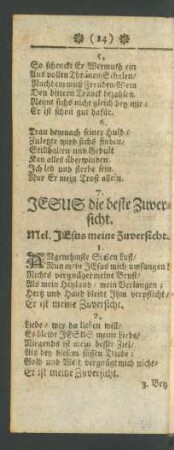 (14)
5.
So schenckt Er Wermuth ein
Aus vollen Thränen-Schalen/
Nachdem muß Freuden-Wein
Den bittern Tranck bezahlen.
Reimt sichs nicht gleich bey mir/
Er ist schon gut dafür.
6.
Trau demnach seiner Huld/
Zuletzt wird sichs finden/
Stillhalten und Geduld
Kan alles überwinden.
Ich leb und sterbe sein/
Nur Er mein Trost allein.
7.
JESUS die beste Zuver-
sicht.
Mel. JEsus meine Zuversicht.
1.
ANgenehmste Seelen Lust/
Nun mein JEsus mich umfangen
Nichts vergnüget meine Brust/
Als mein Heyland/ mein Verlangen;
Hertz und Hand bleibt Ihm verpflicht/
Er ist meine Zuversicht.
2.
Liebe/ wer da lieben will/
Es bleibt JESUS meine Liebe/
Nirgends ist mein bestes Ziel/
Als bey diesem süssen Triebe;
Gold und Welt vergnügt mich nicht/
Er ist meine Zuversicht.
3. Bey